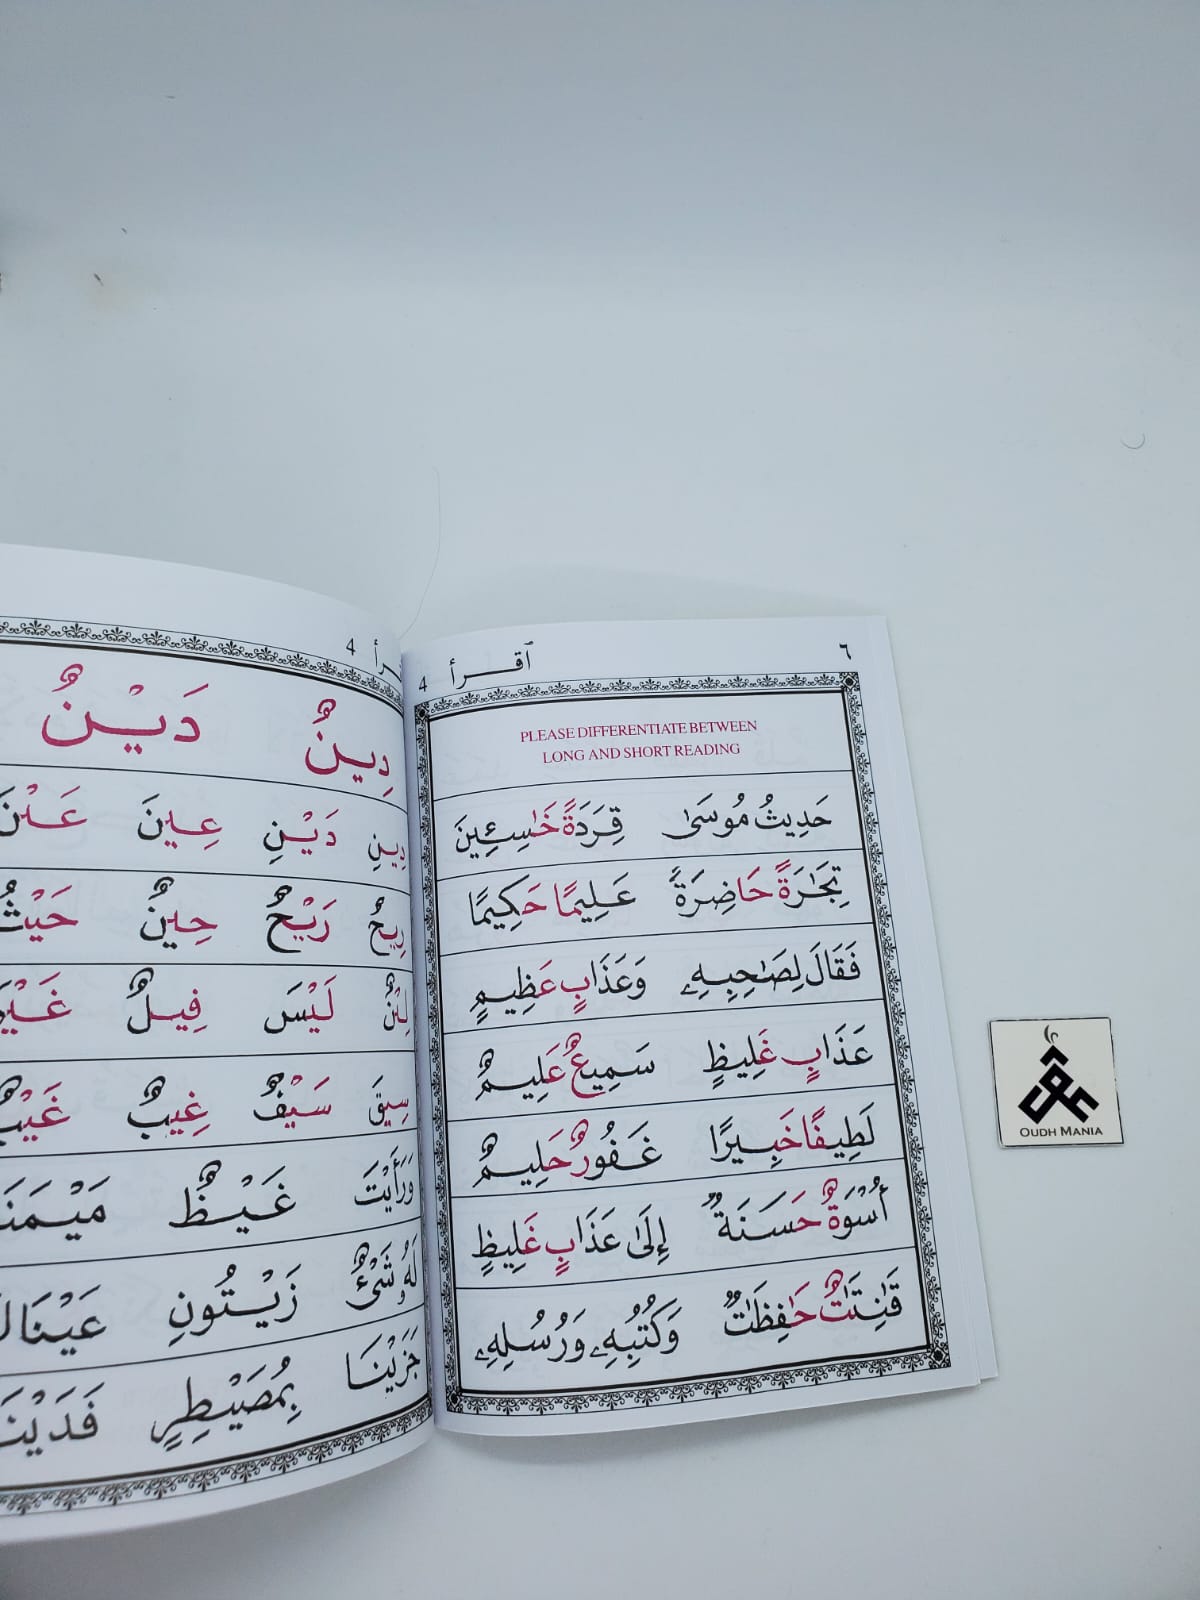 ٦ ٱقْرأ 4
PLEASE DIFFERENTIATE BETWEEN
LONG AND SHORT READING
حَدِيثُ مُوسَىٰ قِرَدَةً خَٰسِـِٔينَ
تِجَٰرَةً حَاضِرَةً عَلِيمًا حَكِيمًا
فَقَالَ لِصَٰحِبِهِۦ وَعَذَابٍ عَظِيمٍ
عَذَابٍ غَلِيظٍ سَمِيعٌ عَلِيمٌ
لَطِيفًا خَبِيرًا غَفُورٌ حَلِيمٌ
أُسْوَةٌ حَسَنَةٌ إِلَىٰ عَذَابٍ غَلِيظٍ
قَٰنِتَٰتٌ حَٰفِظَٰتٌ وَكُتُبِهِۦ وَرُسُلِهِۦ
4
دِينٌ دَيْنٌ
دِينِ دَيْنِ عِينَ
رِيحٌ رَيْحٌ حِينٌ حَيْثُ
لَيْسَ فِيلٌ
سِيقَ سَيْفٌ غِيبٌ غَيْبٌ
وَرَأَيْتَ غَيْظٌ
لَهُۥ شَىْءٌ زَيْتُونِ
جَزَيْنَا بِمُصَيْطِرٍ
OUDH MANIA